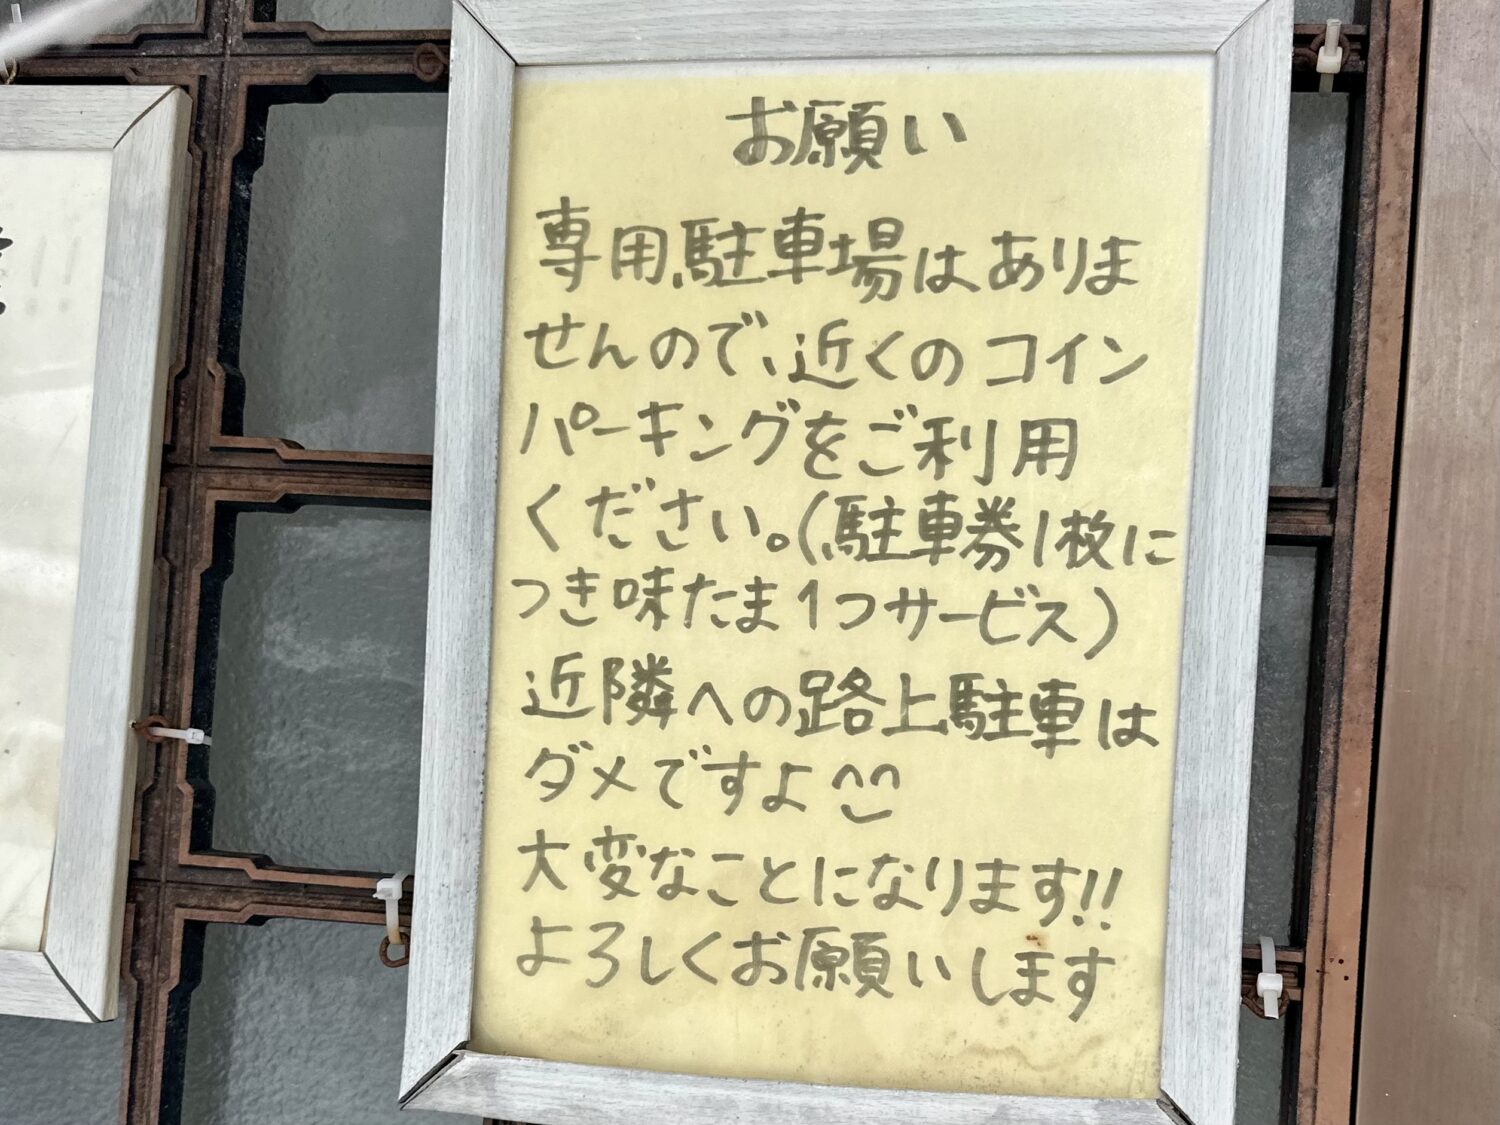 お願い
専用駐車場はありま
せんので、近くのコイン
パーキングをご利用
ください。(駐車券1枚に
つき味たま1つサービス)
近隣への路上駐車は
ダメですよ^^
大変なことになります!!
よろしくお願いします